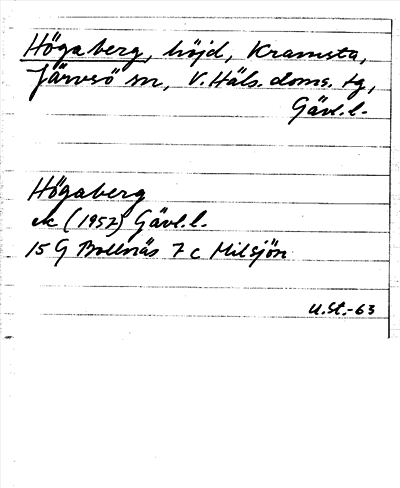 Högaberg, höjd, Kramsta,
Järvsö sn, V. Häls. doms. tg,
Gävl. l.
Högaberg
ek (1957) Gävl. l.
15 G Bollnäs 7 c Milsjön
U.St.-63